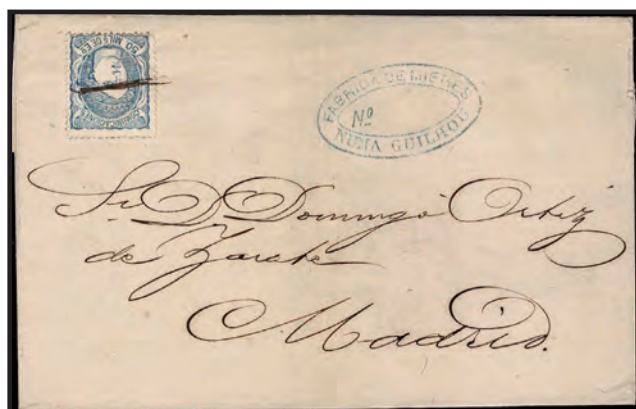 50 MILS DE Eº
COMUNICACIONES
FABRICA DE MIERES
Nº
NUMA GUILHOU
Sr. D. Domingo Ortiz
de Zarate
Madrid.